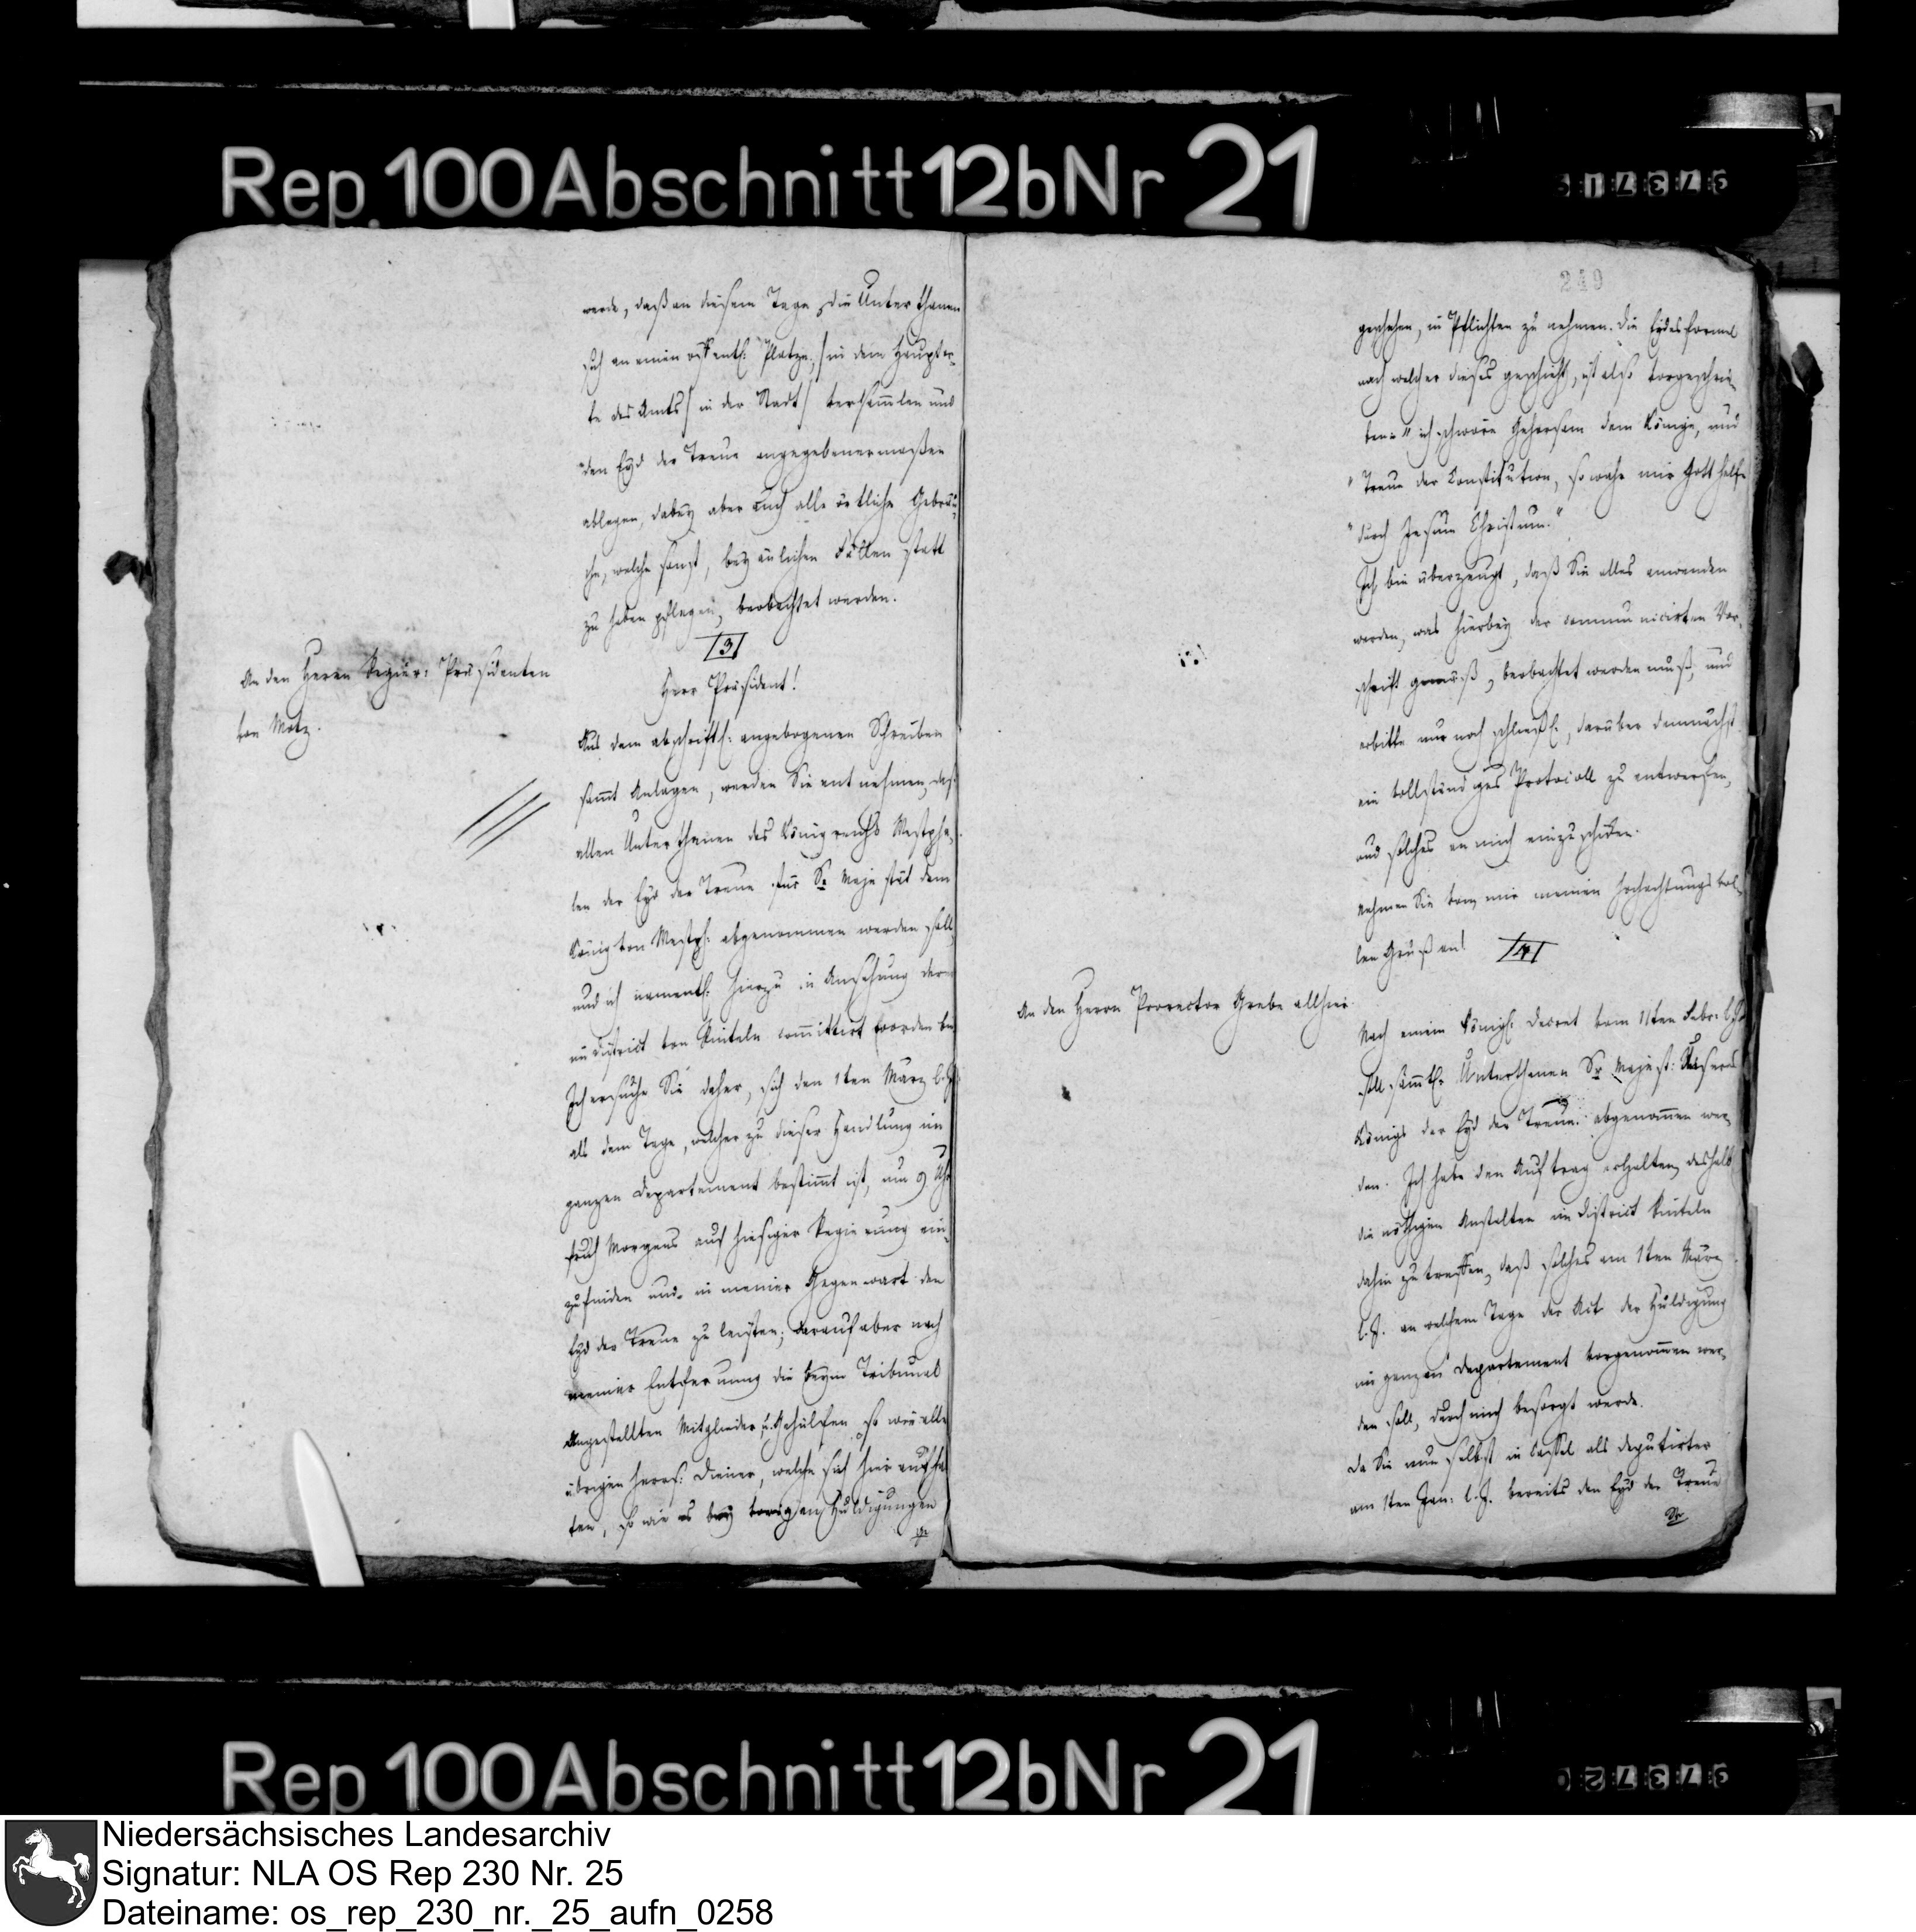 Rep. 100 Abschnitt 12b Nr 21
werde, daß an diesem Tage die Unterthanen
sich an einem öffentl: Platze, in dem Haupt-
te des Amts/ in der Stadt/ versammlen und
den Eyd der Treue angegebenermaßen
ablegen, dabey aber auch alle örtliche Gebräu-
che, welche sonst, bey änlichen Fällen statt
zu haben pflegen, beobachtet werden.
/3/
An den Herrn Regier: Präsidenten
von Motz.
Herr Präsident!
Aus dem abschriftl: angebogenen Schreiben
sammt Anlagen, werden Sie entnehmen, daß
allen Unterthanen des Königreichs Westpha-
len der Eyd der Treue für Se Majestät dem
König von Westph: abgenommen werden soll,
und ich namentl: hierzu in Ansehung der
im District von Rinteln committirt worden bin
Ich ersuche Sie daher, sich den 1ten März l. J.
als dem Tage, welcher zu dieser Handlung im
ganzen Departement bestimmt ist, um 9 Uhr
früh Morgens auf hiesiger Regierung ein-
zufinden und in meiner Gegenwart den
Eyd der Treue zu leisten; darauf aber nach
meiner Entfernung die beym Tribunal
Angestellten Mitglieder u. Gehülfen so wie alle
übrigen herrs: Diener, welche sich hier aufhal
ten, so wie es bey vorigen Huldigungen
ge
240
geschehen, in Pflichten zu nehmen. Die Eydesformel
nach welcher dieses geschieht, ist also vorgeschrie-
ben: "ich schwöre Gehorsam dem Könige, und
"Treue der Constitution, so wahr mir Gott helfe
"durch Jesum Christum."
Ich bin überzeugt, daß Sie alles anwenden
werden, was hierbey der communicirten Vor-
schrift gemäß, beobachtet werden muß, und
erbitte nur noch schließl:, darüber demnächst
ein vollständiges Protocoll zu entwerfen,
und solches an mich einzuschicken.
Nehmen Sie von mir meinen hochachtungsvol-
len Gruß an!
/4/
An den Herrn Prorector Grebe allhier
Nach einem Königl: Decret vom 11ten Febr: l. J.
soll sämtl: Unterthanen Sr Majest: Unsers
Königs der Eyd der Treue abgenommen wer-
den. Ich habe den Auftrag erhalten, deshalb
die nöthigen Anstalten im District Rinteln
dahin zu treffen, daß solches am 1ten März
l. J. an welchem Tage der Act der Huldigung
im ganzen Departement vorgenommen wer-
den soll, durch mich besorgt werde.
Da Sie nun selbst in Cassel als Deputirter
am 1ten Jan: l. J. bereits den Eyd der Treue
Sr
Rep. 100 Abschnitt 12b Nr 21
Niedersächsisches Landesarchiv
Signatur: NLA OS Rep 230 Nr. 25
Dateiname: os_rep_230_nr._25_aufn_0258